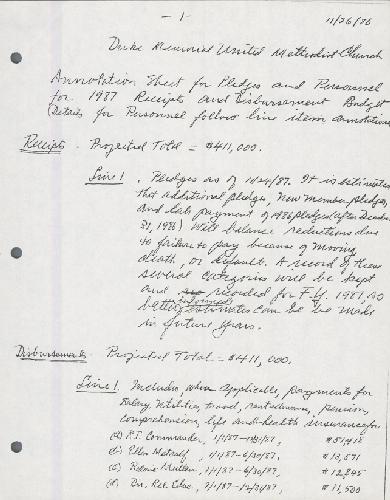 - 1 -
11/26/86
Duke Memorial United Methodist Church
Annotation Sheet for Pledges and Personnel
for 1987 Receipts and Disbursement Budget
Details for Personnel follow line item annotations
Receipts - Projected Total = $411,000.
Line 1. Pledges as of 10/24/87. It is estimated
that additional pledges, new member pledges,
and late payment of 1986 pledges (after December
31, 1986) will balance reductions due
to failure to pay because of moving,
death, or default. A record of these
several categories will be kept
and recorded for F.Y. 1987, so
better informed estimates can be made
in future years.
Disbursements - Projected Total = $411,000.
Line 1. Includes, when applicable, payments for
Salary, Utilities, travel, pension,
comprehension, life and health insurance for
(a) P.T. 1/1/87-12/31/87,
(b) Ellen Metcalf, 1/1/87-6/30/87, $13,571
(c) 1/1/87-6/30/87, $12,845
(d) 7/1/87-12/31/87, $11,500